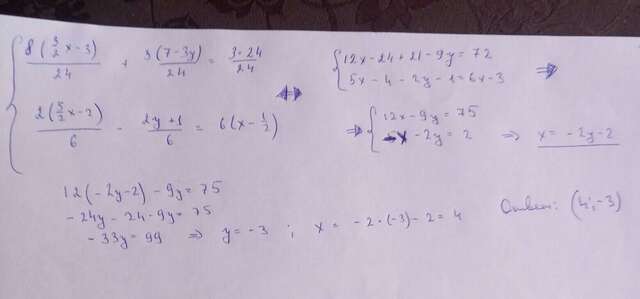 8(3/2x-3)/24 + 3(7-3y)/24 = 3·24/24
2(5/2x-2)/6 - 2y+1/6 = 6(x-1/2)
⇔
{12x-24+21-9y=72
5x-4-2y-1=6x-3 ⇒
⇒ {12x-9y=75
-x-2y=2 ⇒ x=-2y-2
12(-2y-2)-9y=75
-24y-24-9y=75
-33y=99 ⇒ y=-3 ; x=-2·(-3)-2=4
Ответ: (4;-3)